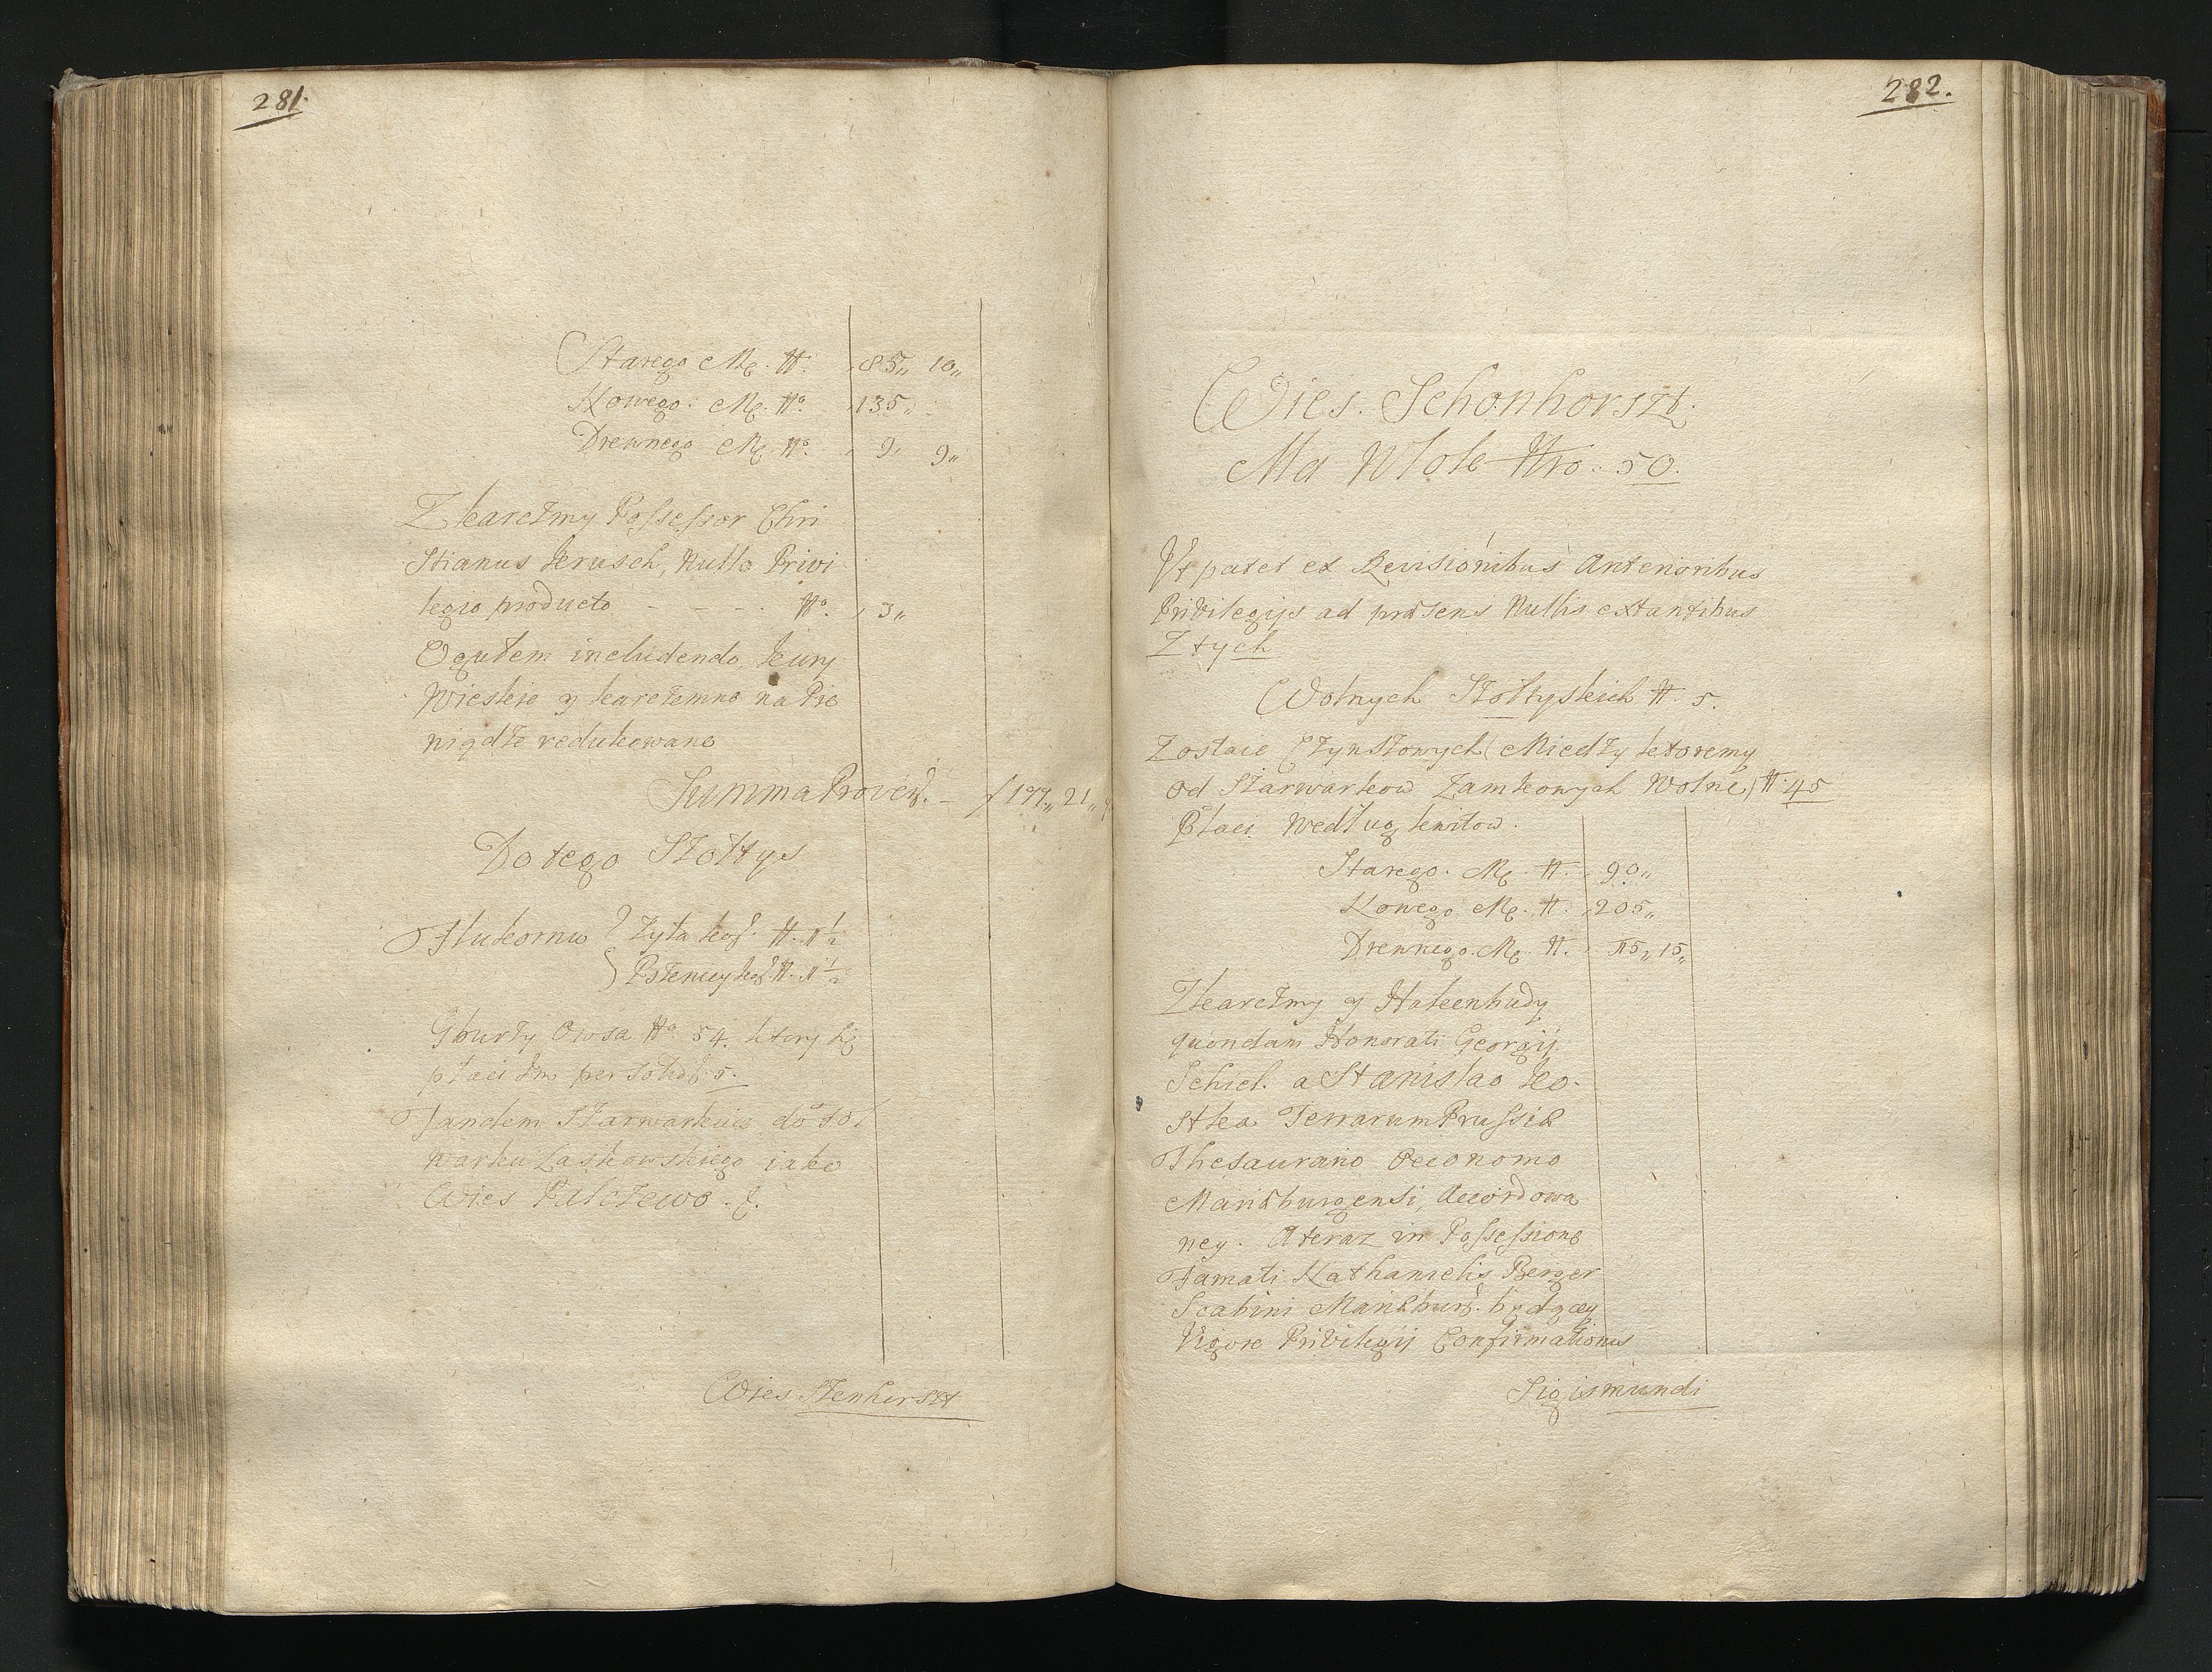 281.
Starego Mę. No. 85,, 10,,
Nowego. Mę. No. 135,,
Drewnego Mę. No. 9, 9,,
Z karczmy Possessor Chri
stianus Krusch, Nullo Privi
legio producto - - - - No. 3,,
Ogułem includendo kury
Wieskie y karczemne na Pie
niądze redukowane
Summa Proven. - f 177,, 21,, 9
Do tego Szołtys
Hukornu Zyta kor. N. 1 1/2
Pszenicy kor. N. 1 1/2
Gburzy Owsa No. 54. ktory się
płaci im per
Tandem Szarwarkuie do Fol
warku Laskowskiego iako
Wies Palczewo.
Wies Szenhorszt
282.
Wies. Schonhorszt.
Ma Włok Nro. 50.
Vt patet ex Revisionibus Anterioribus
Privilegijs ad præsens Nullis extantibus
Z tych
Wolnych Szołtyskich N. 5.
Zostaie Czynszowych (Miedzy ktoremy
od Szarwarkow Zamkowych Wolne) N. 45
Płaci Według kwitow.
Starego. Mę. N. 90,,
Nowego Mę. N. 205,,
Drewnego. Mę. N. 15,, 15,,
Z karczmy y Hakenbudy
quondam Honorati Georgij
Schiel. a Stanislao Ko-
stka Terrarum Prussiæ
Thesaurario Oeconomo
Mariæburgensi, Accordowa
ney. A teraz in Possessione
Famati Nathanielis Berger
Scabini Mariæburg. będącey
Vigore Privilegij Confirmationis
Sigismundi